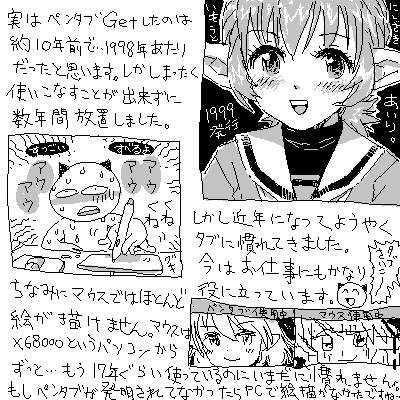 実はペンタブGetしたのは
約10年前で…1998年あたり
だったと思います。しかしまったく
使いこなすことが出来ずに
数年間放置しました。
にしざき
あいり。
いもうと
1999
発行
すっごい
すべるよ
アウ
アウ
アウ
アウ
くねくね
しかし近年になってようやく
タブに慣れてきました。
今はお仕事にもかなり
役に立っています。
ちなみにマウスではほとんど
絵が描けません。マウスは
X68000というパソコンから
ずっと…もう17年ぐらい使っているのにいまだに慣れません。
もしペンタブが発明されてなかったらPCで絵描かなかったですね。
ペンタブ使用中
マウス使用中